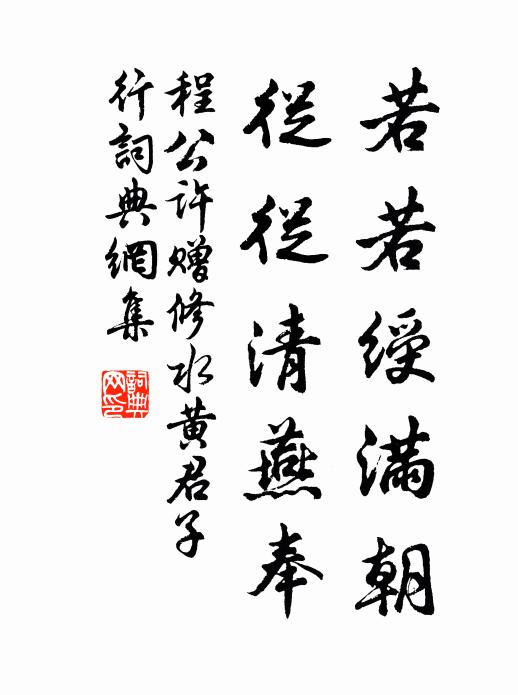 若若綬滿朝
從從清燕奉
程公許贈修水黃君子
行詞典網集
詞典網印